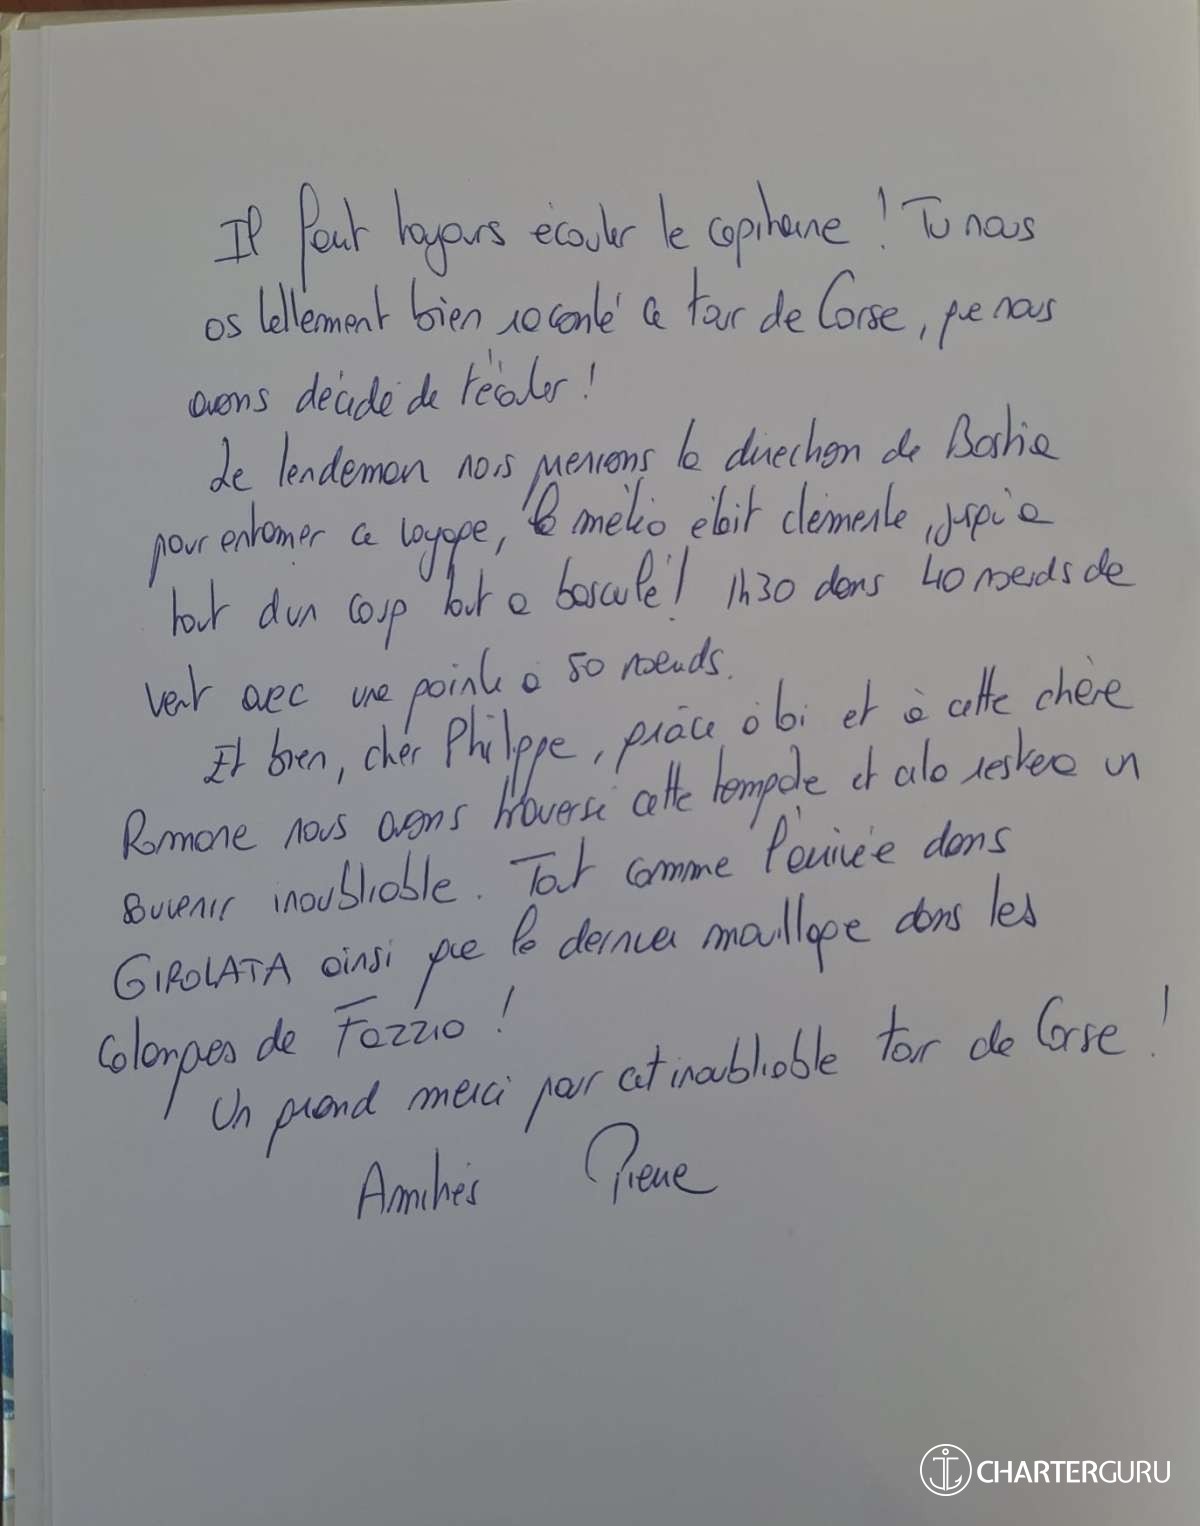 Il faut toujours écouter le capitaine ! Tu nous
as tellement bien raconté ce tour de Corse, que nous
avons décidé de t'écouter !
Le lendemain nous prenions la direction de Bastia
pour entamer ce voyage, la météo était clémente, jusqu'à
tout d'un coup tout a basculé ! 1h30 dans 40 noeuds de
vent avec une pointe à 50 noeuds.
Et bien, cher Philippe, grâce à toi et à cette chère
Romane nous avons traversé cette tempête et cela restera un
souvenir inoubliable. Tout comme l'arrivée dans
GIROLATA ainsi que le dernier mouillage dans les
calanques de Fazzio !
Un grand merci pour cet inoubliable tour de Corse !
Amitiés Pierre
CHARTERGURU